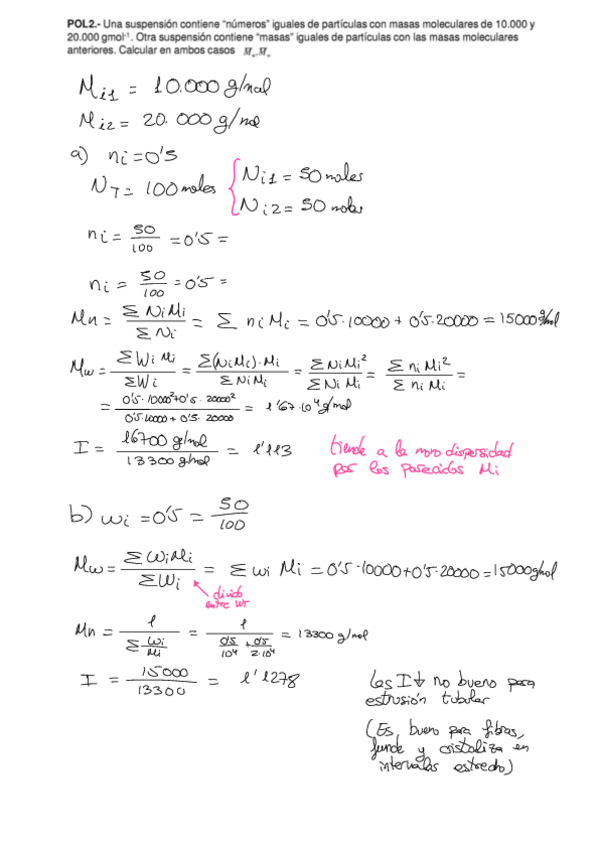 POL2.- Una suspensión contiene "números" iguales de partículas con masas moleculares de 10.000 y
20.000 gmol⁻¹. Otra suspensión contiene "masas" iguales de partículas con las masas moleculares
anteriores. Calcular en ambos casos M_n, M_w
Mi1 = 10.000 g/mol
Mi2 = 20.000 g/mol
a) ni = 0'5
N_T = 100 moles { Ni1 = 50 moles
Ni2 = 50 moles
ni = 50/100 = 0'5 =
ni = 50/100 = 0'5 =
Mn = Σ NiMi / Σ Ni = Σ niMi = 0'5·10000 + 0'5·20000 = 15000 g/mol
Mw = Σ Wi Mi / Σ Wi = Σ(NiMi)·Mi / Σ NiMi = Σ NiMi² / Σ Ni Mi = Σ ni Mi² / Σ ni Mi =
= 0'5·10000² + 0'5·20000² / 0'5·10000 + 0'5·20000 = 1'67·10⁴ g/mol
I = 16700 g/mol / 13300 g/mol = 1'113 tiende a la mono dispersidad
por los parecidos Mi
b) wi = 0'5 = 50/100
Mw = Σ WiMi / Σ Wi = Σ wi Mi = 0'5·10000 + 0'5·20000 = 15000 g/mol
divido
entre WT
Mn = 1 / Σ wi/Mi = 1 / 0'5/10⁴ + 0'5/2·10⁴ = 13300 g/mol
I = 15000 / 13300 = 1'1278 Las I↓ no bueno para
estrusión tubular
(Es bueno para fibras,
funde y cristaliza en
intervalos estrecho)